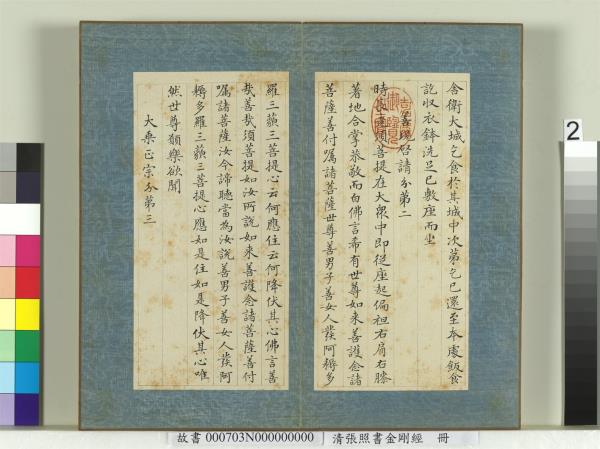 舍衛大城乞食於其城中次第乞已還至本處飯食
訖収衣鉢洗足已敷座而坐
善現啓請分第二
時長老須菩提在大衆中即從座起偏袒右肩右膝
著地合掌恭敬而白佛言希有世尊如來善護念諸
菩薩善付囑諸菩薩世尊善男子善女人發阿耨多
羅三藐三菩提心云何應住云何降伏其心佛言善
哉善哉須菩提如汝所說如來善護念諸菩薩善付
囑諸菩薩汝今諦聽當為汝說善男子善女人發阿
耨多羅三藐三菩提心應如是住如是降伏其心唯
然世尊願樂欲聞
大乘正宗分第三
2
故書 000703N000000000 清張照書金剛經 冊